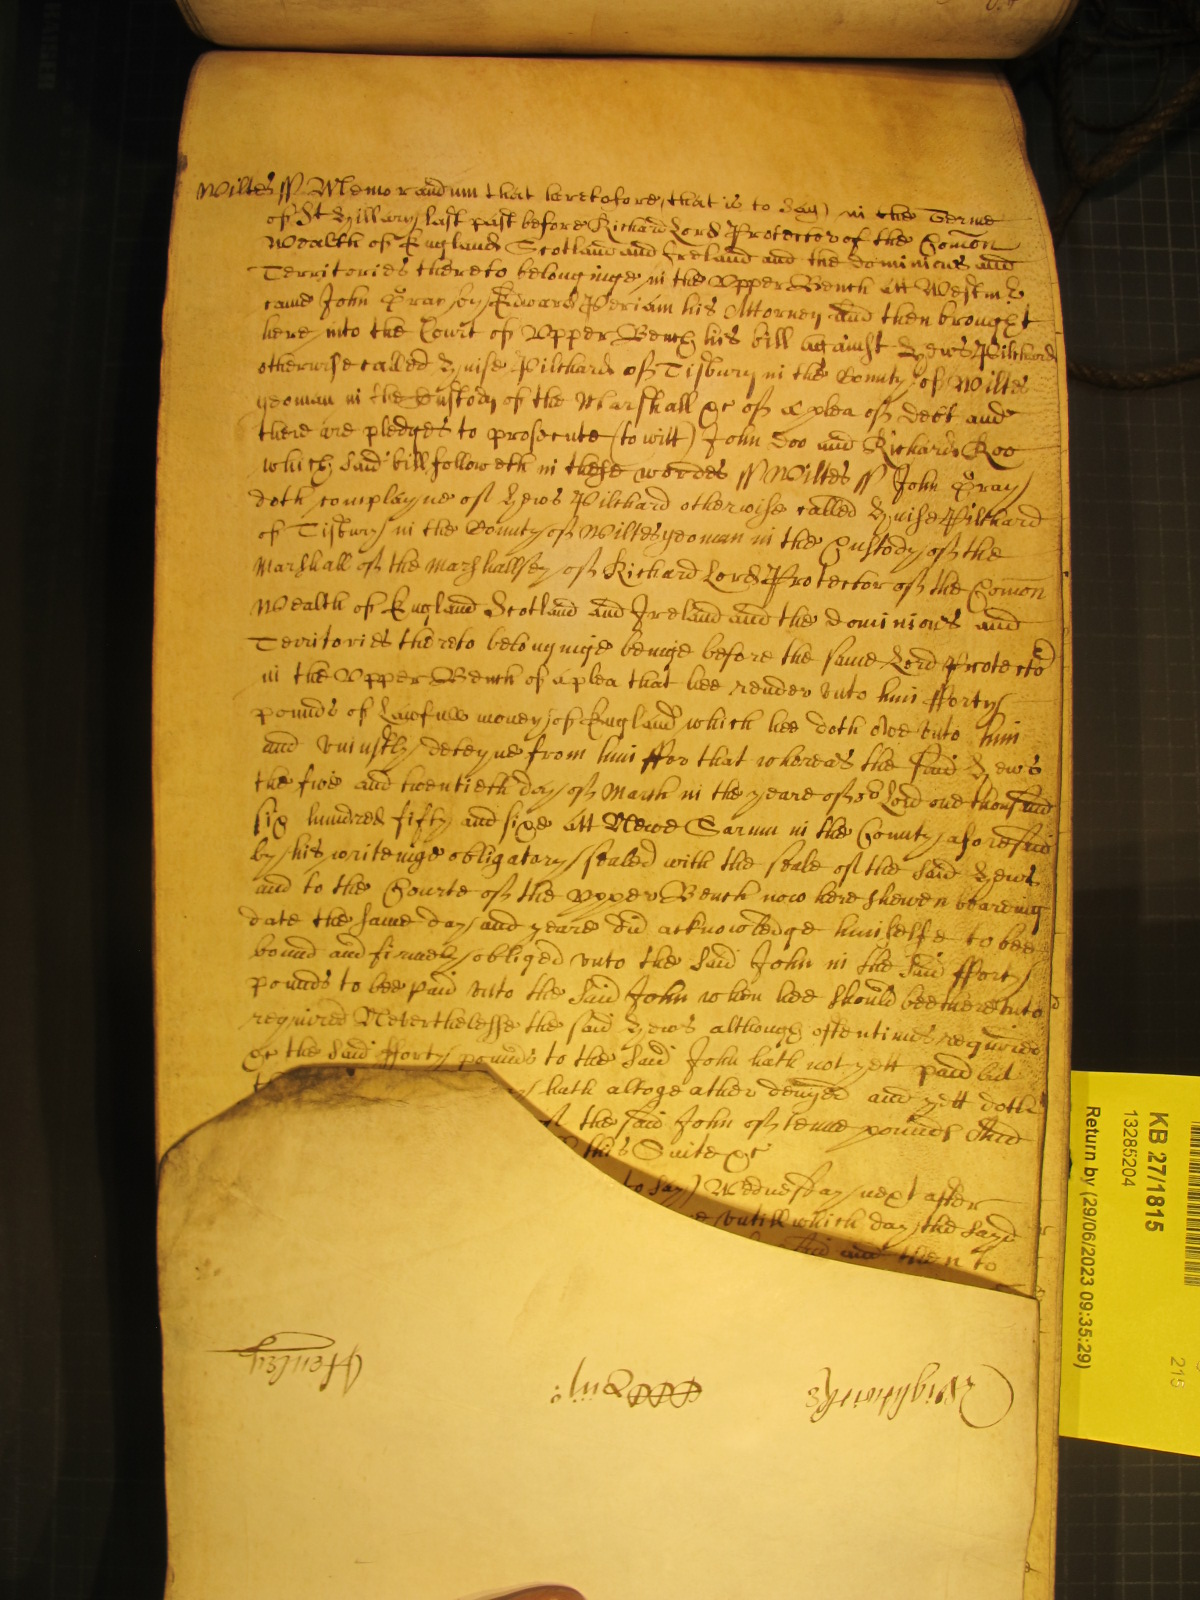 Wiltes ss Memorandum that heretofore (that is to say) in the Terme
of St Hillary last past before Richard Lord Protector of the Comon
Wealth of England Scotland and Ireland and the dominions and
Territories thereto belonginge in the Upper Bench att Westmr
came John Gray by Edward Periam his Attorney and then brought
here into the Court of Upper Bench his bill against Hews Pilchard
otherwise called Huise Pilchard of Tisbury in the County of Wiltes
yeoman in the Custody of the Marshall &c of a plea of debt and
there are pledges to prosecute (to witt) John Doo and Richard Roo
which said bill followeth in these wordes ss Wiltes ss John Gray
doth complayne of Hews Pilchard otherwise called Huise Pilchard
of Tisbury in the County of Wiltes yeoman in the Custody of the
Marshall of the Marshallsey of Richard Lord Protector of the Comon
Wealth of England Scotland and Ireland and the dominions and
Territories thereto belonginge beinge before the same Lord Protector
in the Upper Bench of a plea that hee render unto him fforty
pounds of Lawfull money of England which hee doth owe unto him
and uniustly deteyne from him ffor that whereas the said Hews
the five and twentieth day of March in the yeare of our Lord one thousand
six hundred fifty and sixe att Newe Sarum in the County aforesaid
by his writeinge obligatory sealed with the seale of the said Hews
and to the Courte of the Upper Bench now here shewen beareing
date the same day and yeare did acknowledge himselfe to bee
bound and firmely obliged unto the said John in the said fforty
pounds to bee paid unto the said John when hee should bee thereunto
required Neverthelesse the said Hews although oftentimes required
&c the said fforty pounds to the said John hath not yett paid but
hath altogeather denyed and yett doth
the said John of tenne pounds And
this Suite &c
to say) Wednesday next after
untill which day the said
and then to
Wightwicke
Henley
KB 27/1815
13285204
Return by (29/06/2023 09:35:29)